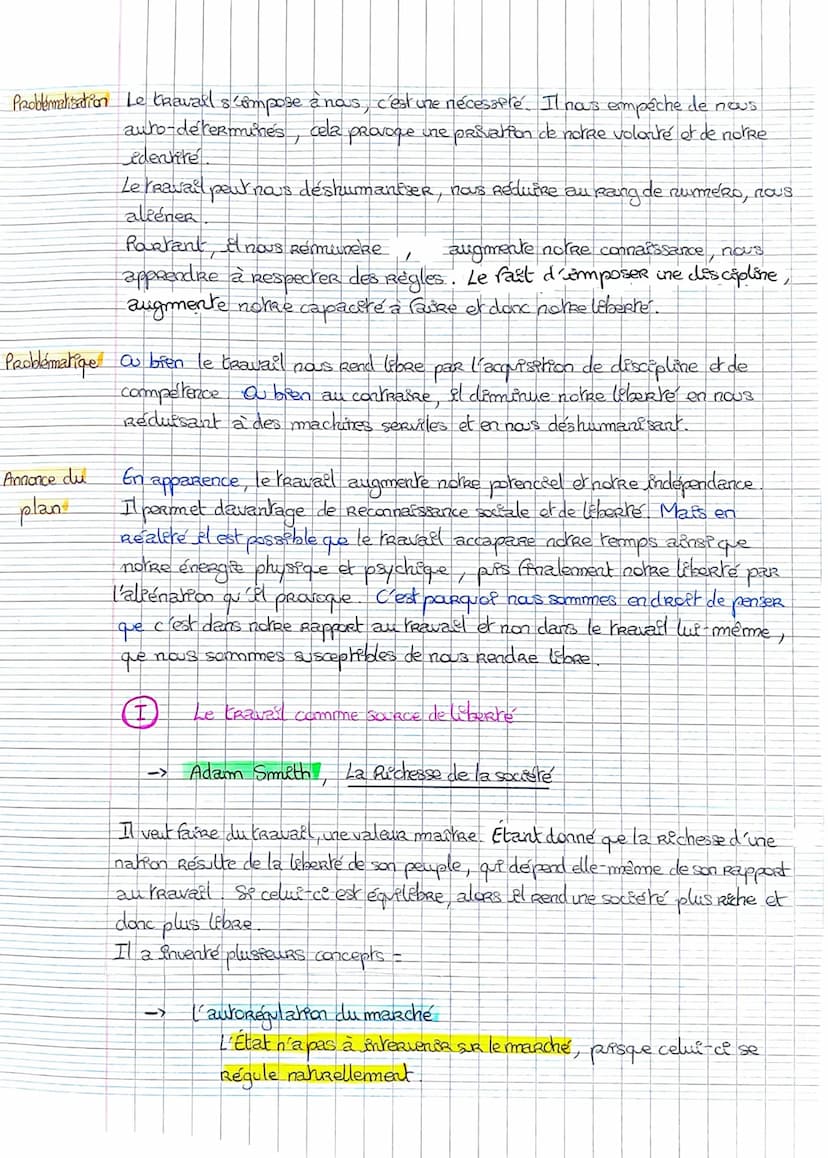 Problématisation Le travail s'impose à nous, c'est une nécessité. Il nous empêche de nous
auto-déterminés, cela provoque une privation de notre volonté et de notre
identité.
Le travail peut nous déshumaniser, nous réduire au rang de numéro, nous
aliéner.
Pourtant, il nous rémunère , augmente notre connaissance, nous
apprendre à respecter des règles. Le fait d'imposer une discipline,
augmente notre capacité à faire et donc notre liberté.
Problématique Ou bien le travail nous rend libre par l'acquisition de discipline et de
compétence. Ou bien au contraire, il diminue notre liberté en nous
réduisant à des machines serviles et en nous déshumanisant.
Annonce du En apparence, le travail augmente notre potenciel et notre indépendance.
plan Il permet davantage de reconnaissance sociale et de liberté. Mais en
réalité il est possible que le travail accapare notre temps ainsi que
notre énergie physique et psychique, puis finalement notre liberté par
l'aliénation qu'il provoque. C'est pourquoi nous sommes en droit de penser
que c'est dans notre rapport au travail et non dans le travail lui-même,
que nous sommes susceptibles de nous rendre libre.
I Le travail comme source de liberté
-> Adam Smith, La Richesse de la société
Il veut faire du travail, une valeur maître. Étant donné que la richesse d'une
nation résulte de la liberté de son peuple, qui dépend elle-même de son rapport
au travail. Si celui-ci est équilibre, alors il rend une société plus riche et
donc plus libre.
Il a inventé plusieurs concepts =
-> L'autorégulation du marché
L'État n'a pas à intervenir sur le marché, puisque celui-ci se
régule naturellement.